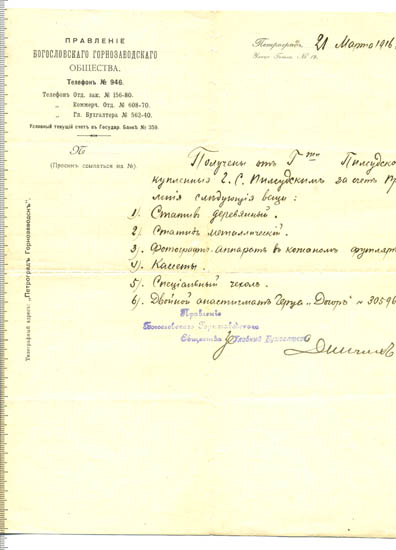 ПРАВЛЕНІЕ
БОГОСЛОВСКАГО ГОРНОЗАВОДСКАГО
ОБЩЕСТВА.
Телефонъ № 946.
Телефонъ Отд. заж. № 156-80.
„ Коммерч. Отд. № 608-70.
„ Гл. Бухгалтера № 562-40.
Условный текущій счетъ въ Государ. Банкѣ № 359.
№
(Просимъ ссылаться на №).
Петроградъ, 21 Марта 1916
Улица Гоголя № 19.
Телеграфный адресъ: „Петроградъ Горнозаводскъ".
Получены отъ Г
купленныя Г. С. Пилсудскимъ за счетъ
ленія слѣдующія вещи:
1) Стативъ деревянный.
2) Стативъ металлическій.
3) Фотографъ. Аппаратъ въ кожаномъ
4) Кассеты.
5) Спеціальный чехолъ.
6) Двойной анастигматъ Герца „Дагоръ" № 30596
Правленіе
Богословскаго Горнозаводскаго
Общества Главный Бухгалтеръ